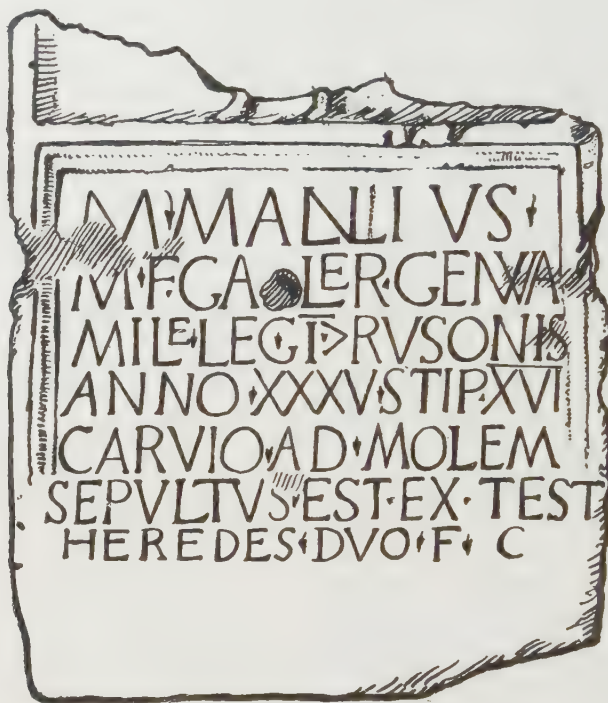 M·MANLIVS·
M·F·GALER·GENVA
MILE·LEG·I·>RVSONIS
ANNO·XXXV·STIP·XVI
CARVIO·AD·MOLEM
SEPVLTVS·EST·EX·TEST
HEREDES·DVO·F·C